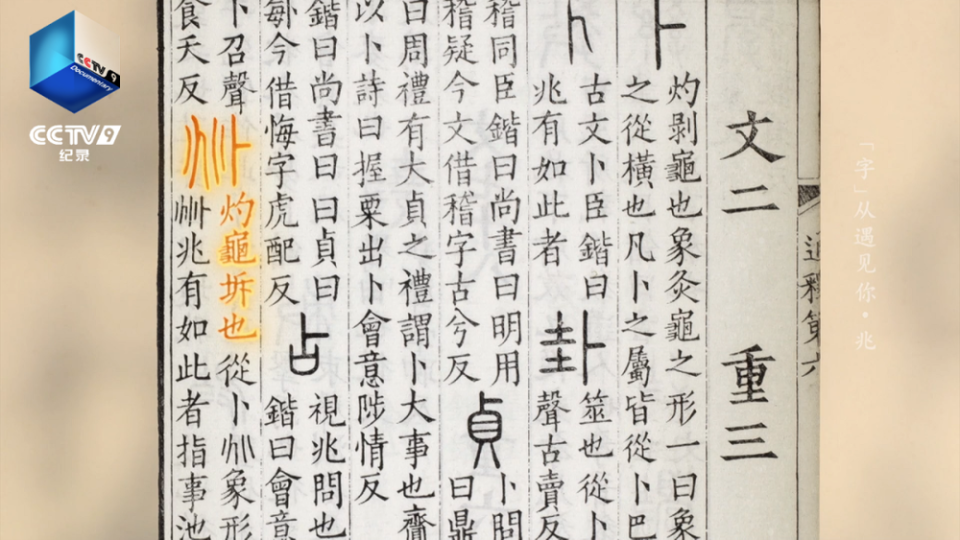 CCTV 9
Documentary
CCTV9
纪录
「字」从遇见你·兆
通釋第六
文二 重三
卜
灼剥龜也象灸龜之形一曰象
之從橫也凡卜之屬皆從卜巴
卜
古文卜臣鍇曰
兆有如此者
卦
筮也從卜
聲古賣反
稽同臣鍇曰尚書曰明用
稽疑今文借稽字古兮反
貞
卜問
曰鼎
曰周禮有大貞之禮謂卜大事也齎
以卜詩曰握粟出卜會意陟情反
鍇曰尚書曰曰貞曰
今借悔字虎配反
占
視兆問也
鍇曰會意
卜召聲
食夭反
𠧞
灼龜坼也從卜兆象形
𠧞兆有如此者指事池